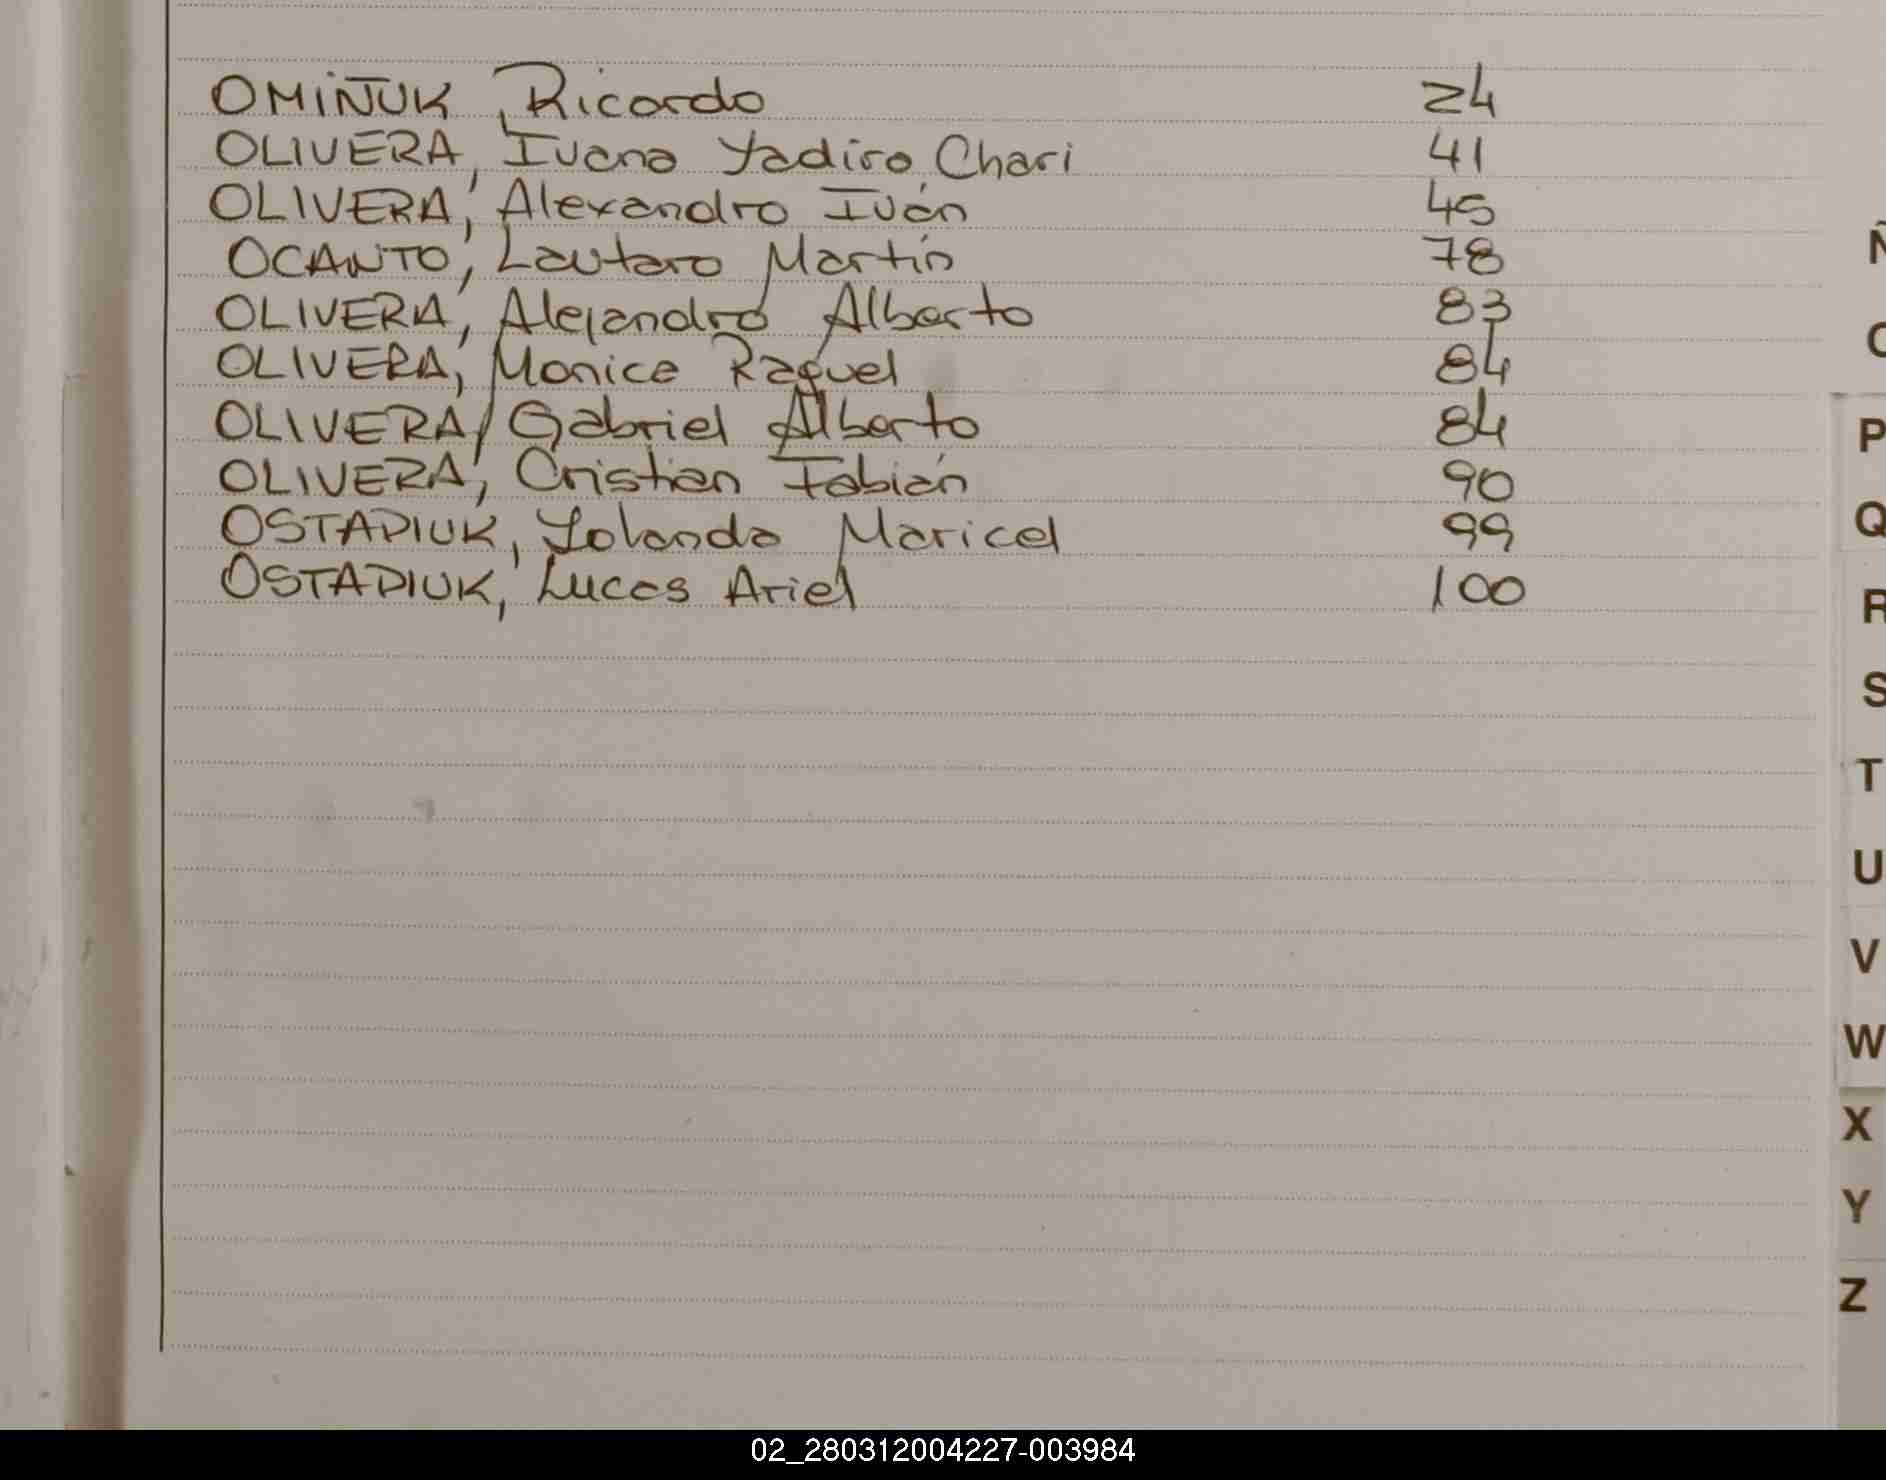 OMIÑUK, Ricardo 24
OLIVERA, Ivana Yadira Chari 41
OLIVERA, Alexandro Iván 45
OCANTO, Lautaro Martín 78
OLIVERA, Alejandro Alberto 83
OLIVERA, Monica Raquel 84
OLIVERA, Gabriel Alberto 84
OLIVERA, Cristian Fabián 90
OSTAPIUK, Yolanda Maricel 99
OSTAPIUK, Lucas Ariel 100
Ñ
O
P
Q
R
S
T
U
V
W
X
Y
Z
02_280312004227-003984